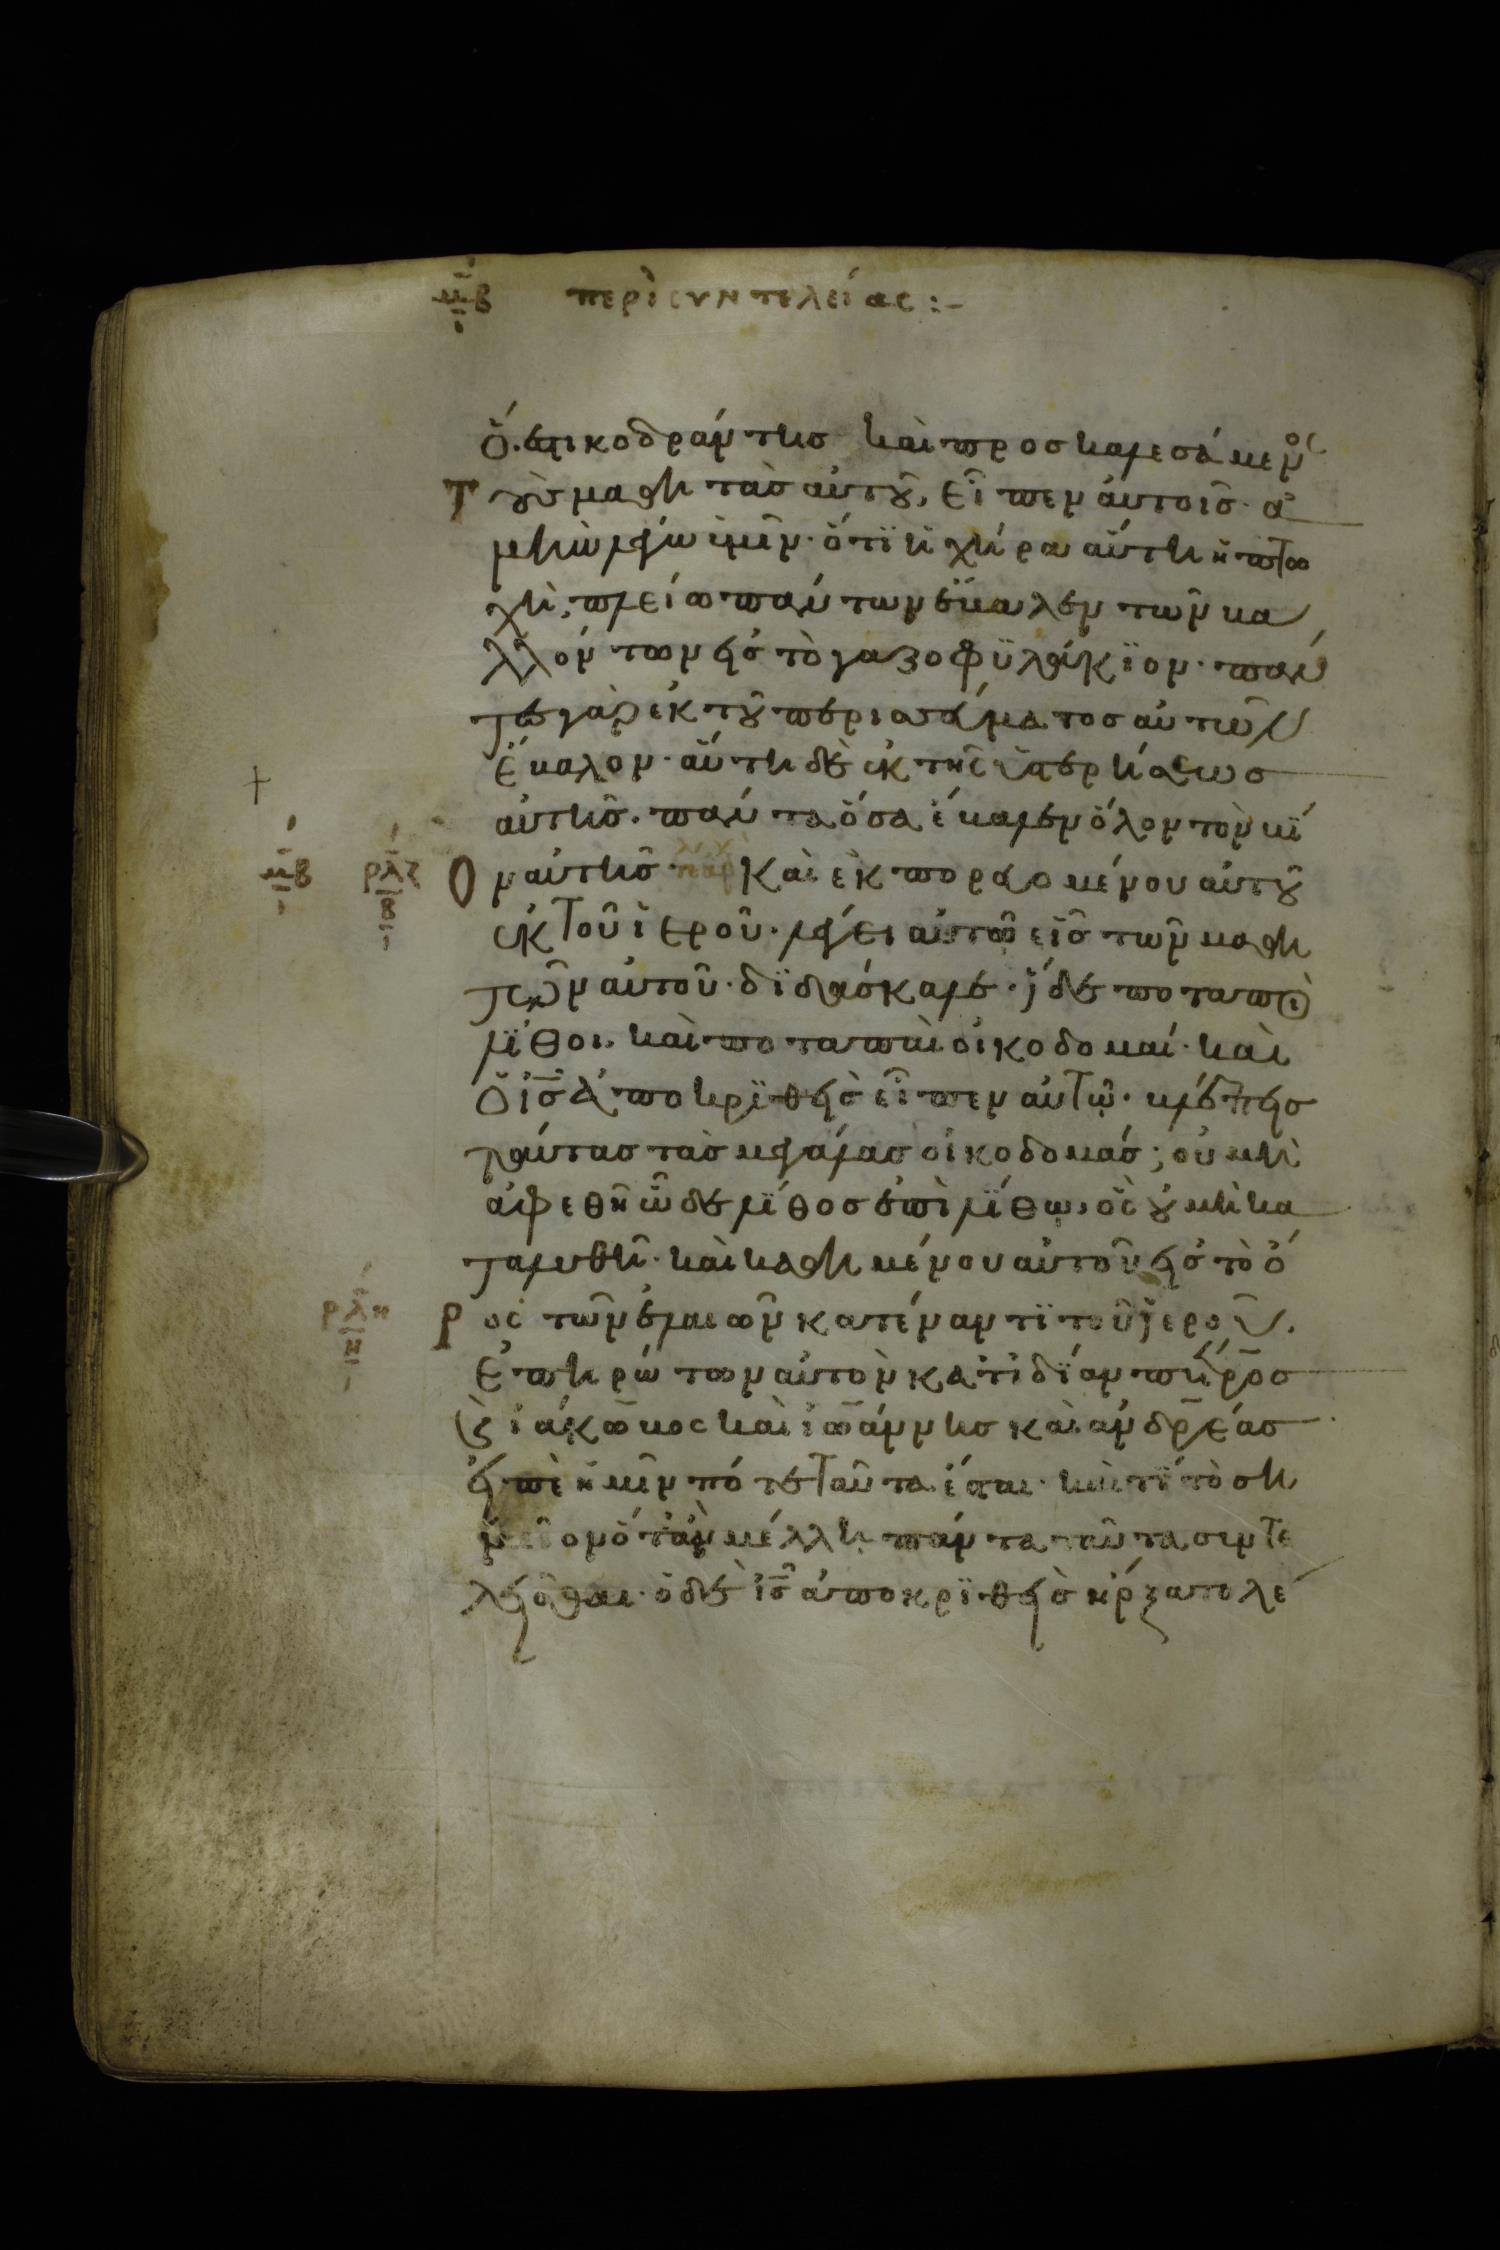 μβ περὶ συντελείας :-
ὅ ἐστι κοδράντησ καὶ προσκαλεσάμενος
τοὺσ μαθητὰσ αὐτοῦ, εἶπεν αὐτοῖσ· ἀ
μὴν λέγω ὑμῖν· ὅτϊ ἡ χήρα αὕτη ἡ πτω
χὴ, πλείω πάντων ἔβαλεν τῶν βα
λλόντων εἰσ τὸ γαζοφϋλάκϊον· πάν
τεσ γὰρ ἐκ τοῦ περισσεύματοσ αὐτῶν
ἔβαλον· αὕτη δὲ ἐκ τῆς ὑστερήσεωσ
αὐτῆσ· πάντα ὅσα εἶχεν ἔβαλεν ὅλον τὸν βϊ
μβ ρλζ β ον αὐτῆσ· Καὶ ἐκπορευομένου αὐτοῦ
ἐκ τοῦ ἱεροῦ· λέγει αὐτῶ εἷσ τῶν μαθη
τῶν αὐτοῦ· δϊδάσκαλε· ἴδε ποταποὶ
λϊθοι καὶ ποταπαὶ οἰκοδομαί· καὶ
ὁ ισ ἀποκρϊθεὶσ εἶπεν αὐτῶ· βλέπεισ
ταύτασ τὰσ μεγάλασ οἰκοδομάσ; οὐ μὴ
ἀφεθῆ ὧδε λϊθοσ ἐπὶ λϊθω, ὃς οὐ μὴ κα
ταλυθῆ· καὶ καθημένου αὐτοῦ εἰσ τὸ ὄ
ρλη ρος τῶν ἐλαιῶν κατέναντϊ τοῦ ἱεροῦ.
ἐπηρώτων αὐτὸν κατ' ἰδϊαν πέτροσ
καὶ ἰάκωβος καὶ ἰωάννησ καὶ ἀνδρέασ
εἰπὲ ἡμῖν πότε ταῦτα ἔσται· καὶ τϊ τὸ ση
μεῖον ὅταν μέλλη πάντα ταῦτα συντε
λεῖσθαι· ὁ δὲ ισ ἀποκρϊθεὶσ ἤρξατο λέ